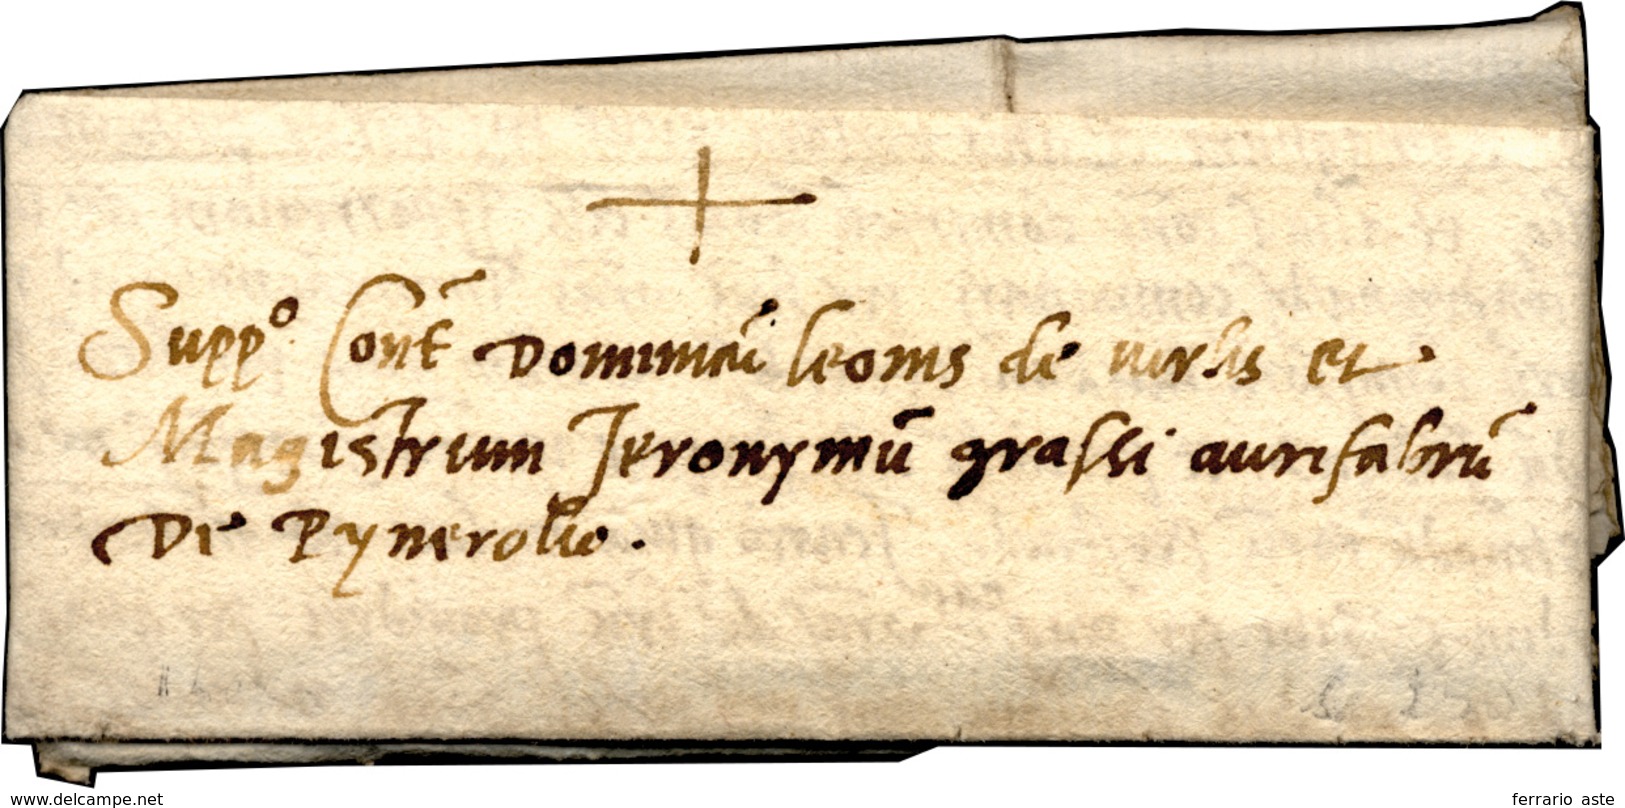 +
Supp.º Cont̃ Dominicũ leonis de ursis et.
Magistrum Jeronymũ grassi aurifabrũ
De Pynerolio.
www.delcampe.net
ferrario aste